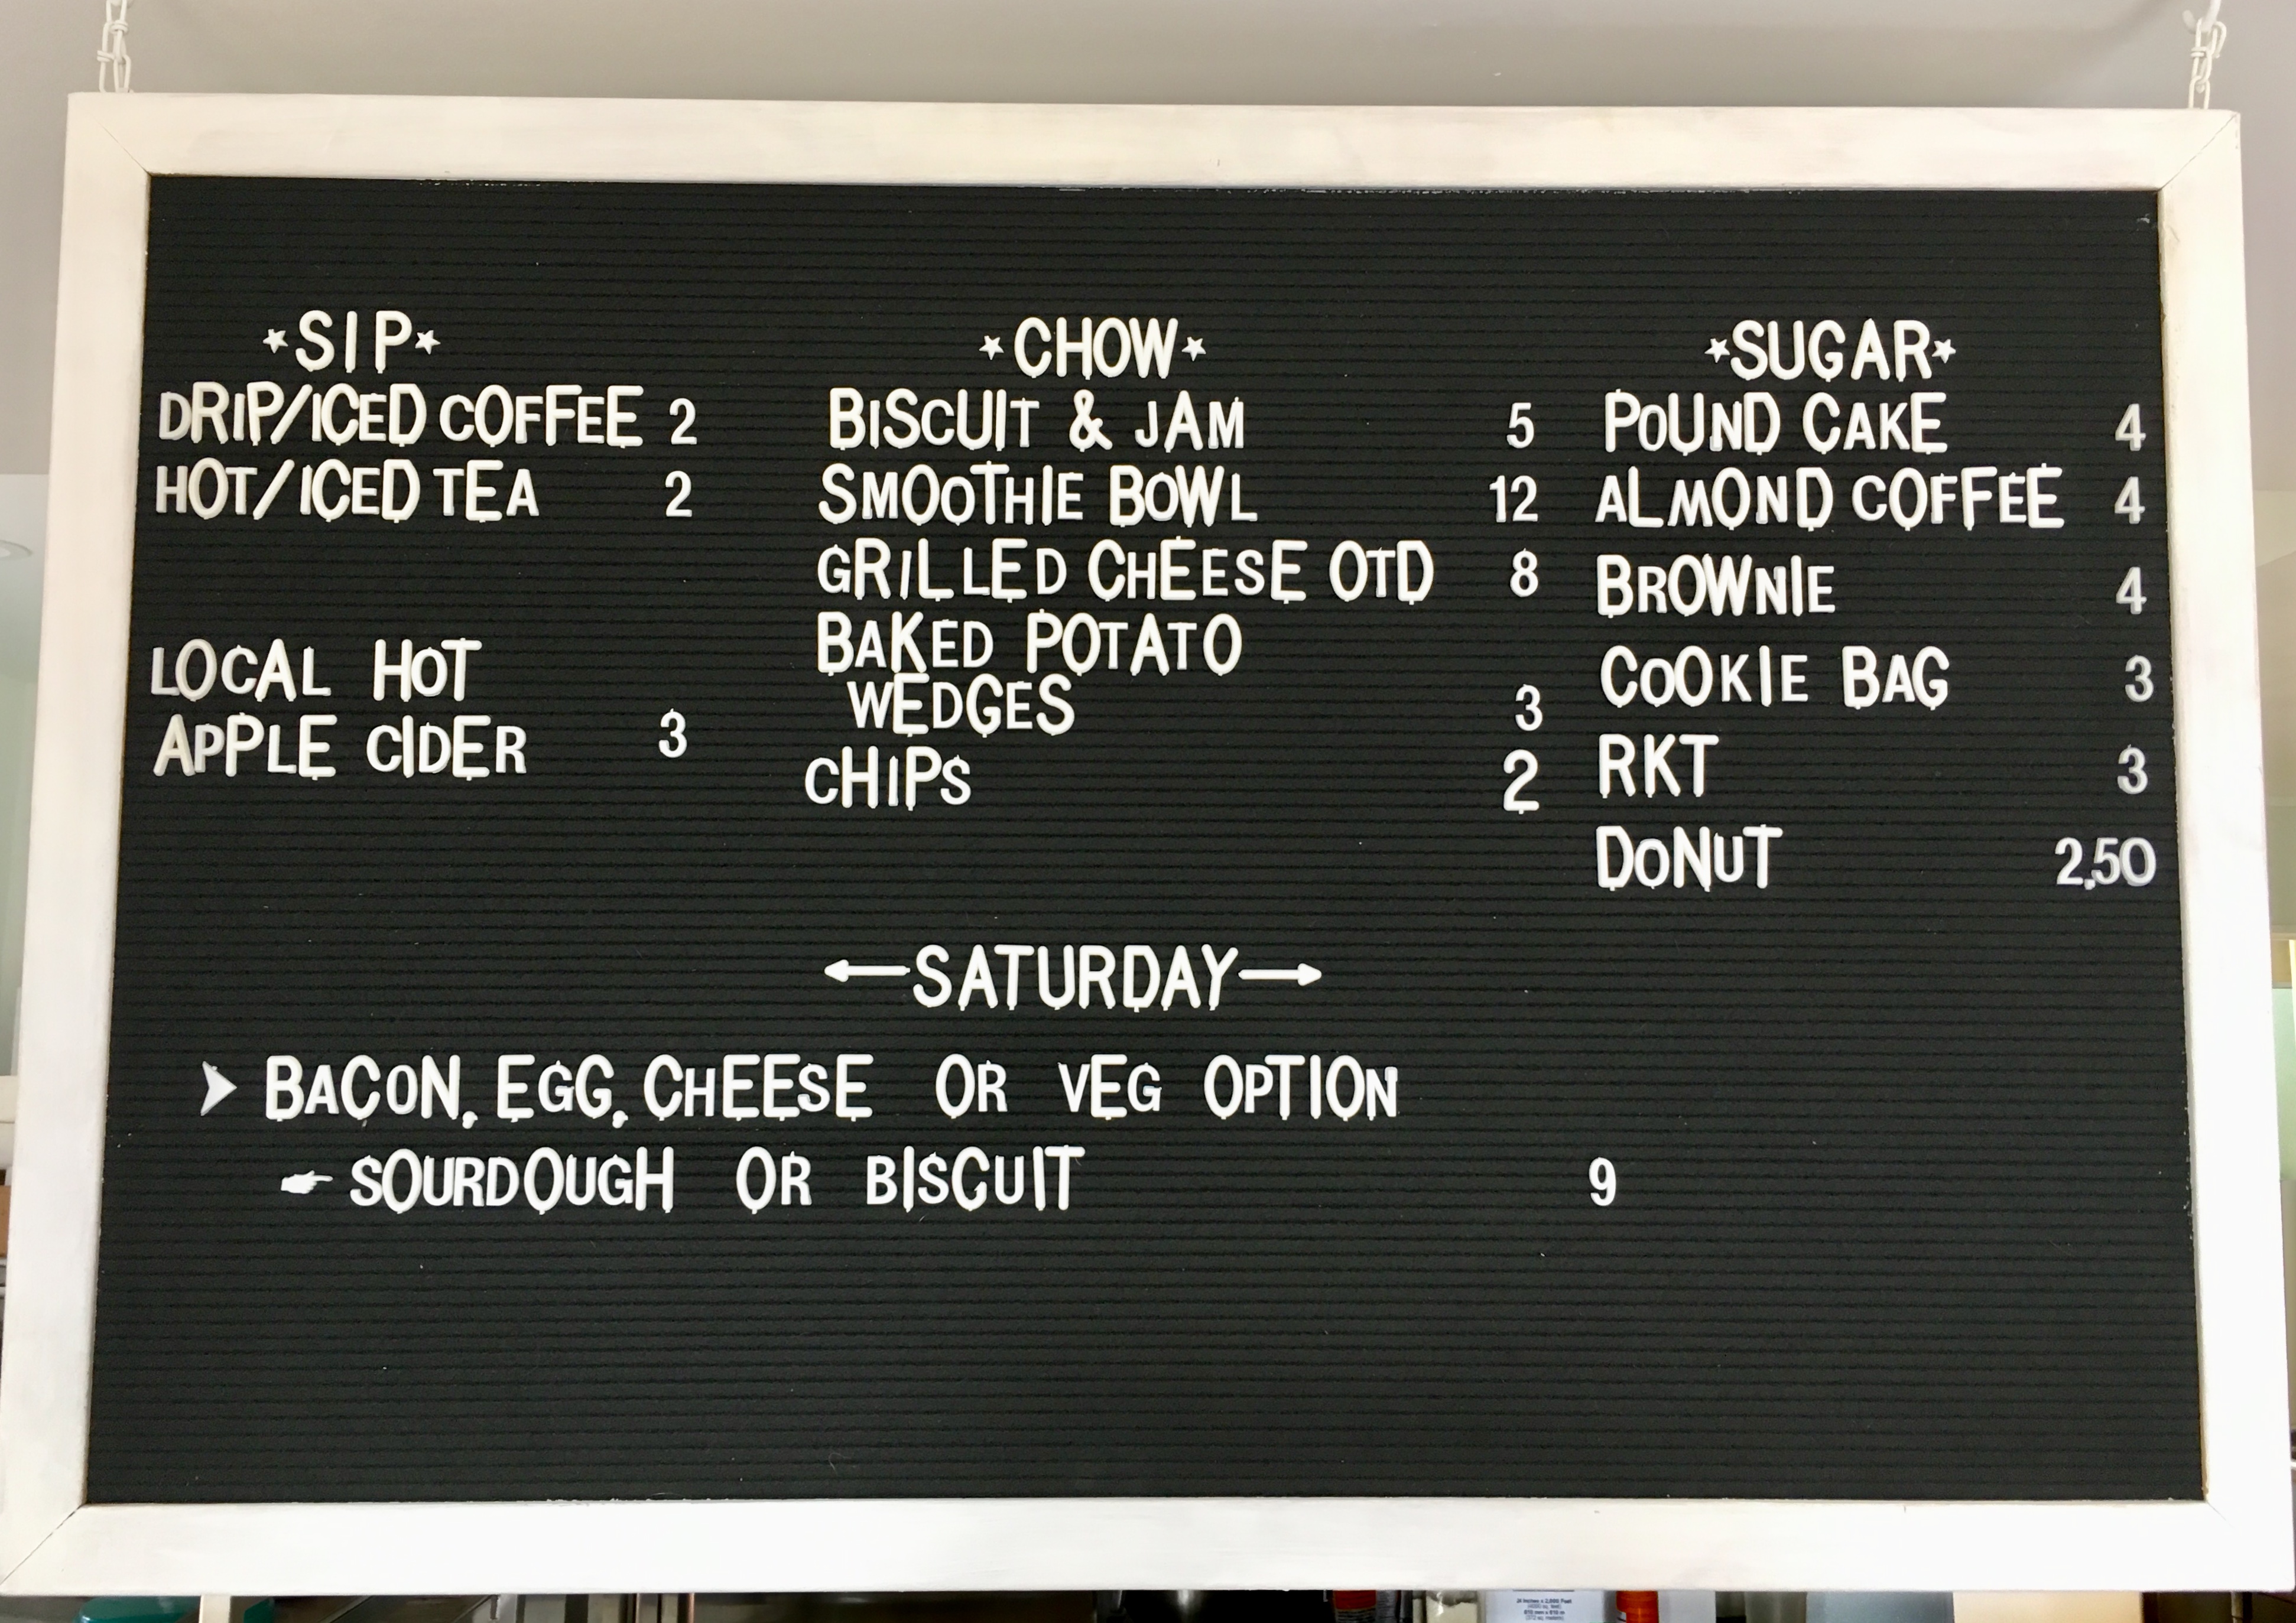 SIP
DRIP/ICED COFFEE 2
HOT/ICED TEA 2
LOCAL HOT
APPLE CIDER 3
CHOW
BISCUIT & JAM 5
SMOOTHIE BOWL 12
GRILLED CHEESE OTD 8
BAKED POTATO
WEDGES 3
CHIPS 2
SUGAR
POUND CAKE 4
ALMOND COFFEE 4
BROWNIE 4
COOKIE BAG 3
RKT 3
DONUT 2,50
SATURDAY
BACON, EGG, CHEESE OR VEG OPTION
SOURDOUGH OR BISCUIT 9